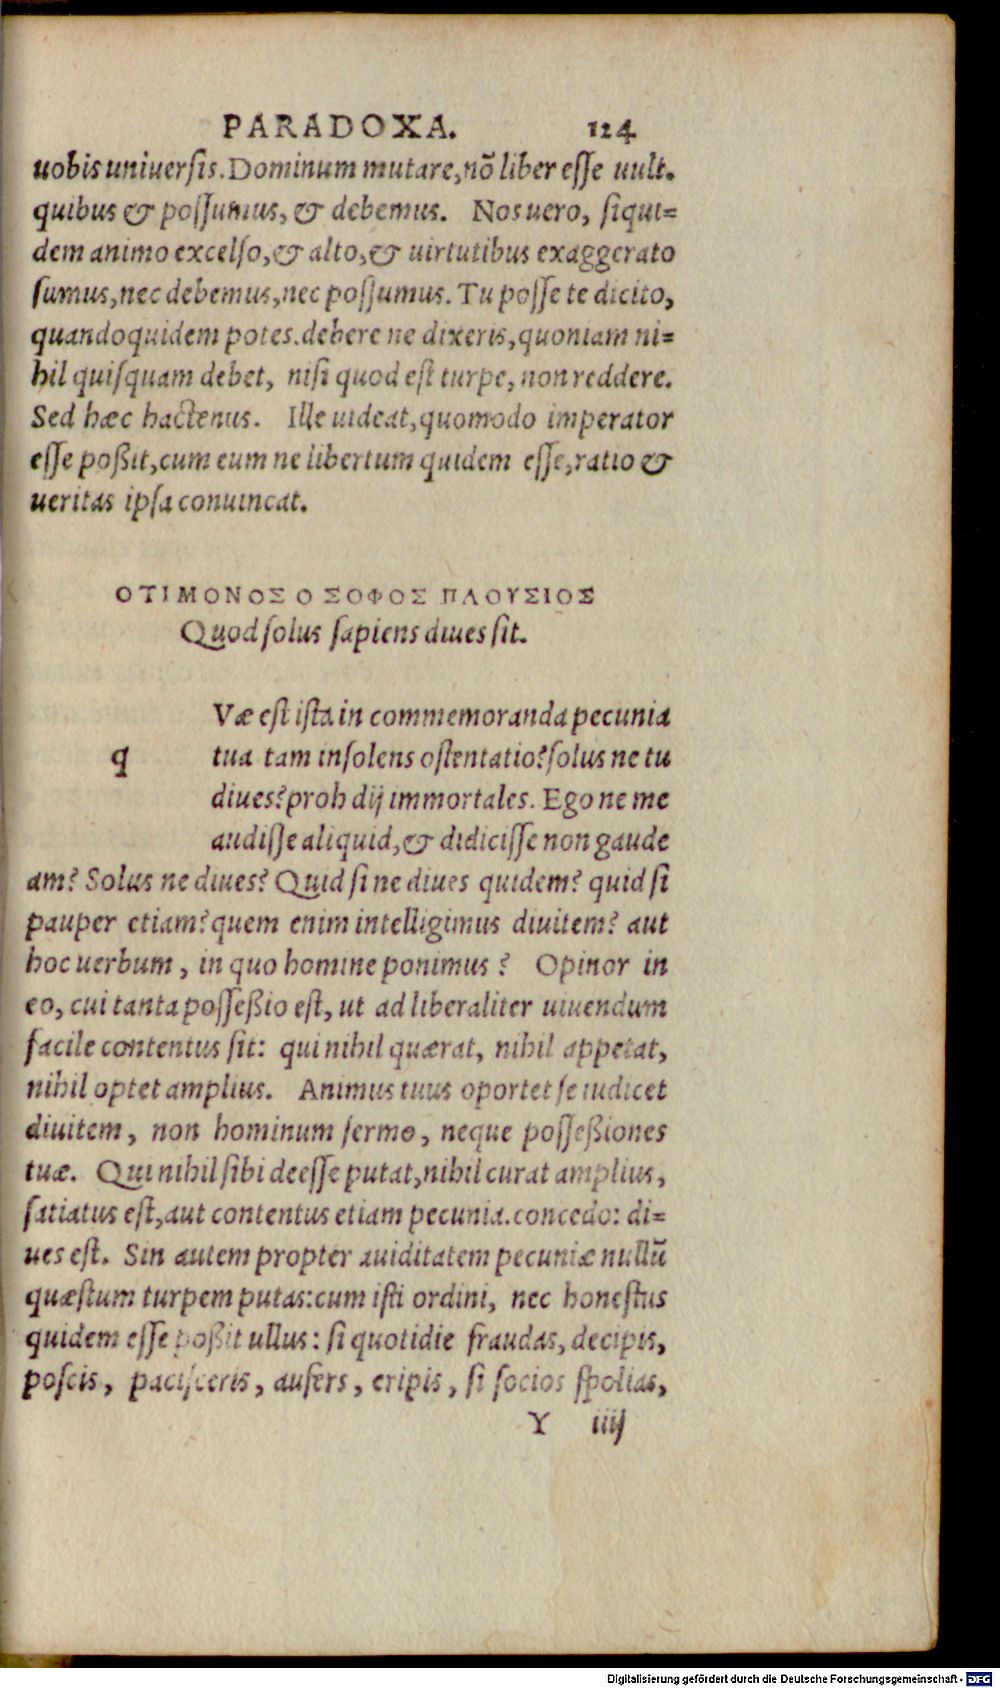 PARADOXA. 124
uobis uniuersis. Dominum mutare, nõ liber esse uult.
quibus & possumus, & debemus. Nos uero, siqui=
dem animo excelso, & alto, & uirtutibus exaggerato
sumus, nec debemus, nec possumus. Tu posse te dicito,
quandoquidem potes. debere ne dixeris, quoniam ni=
hil quisquam debet, nisi quod est turpe, non reddere.
Sed hæc hactenus. Ille uideat, quomodo imperator
esse poßit, cum eum ne libertum quidem esse, ratio &
ueritas ipsa conuincat.
ΟΤΙ ΜΟΝΟΣ Ο ΣΟΦΟΣ ΠΛΟΥΣΙΟΣ
Quod solus sapiens diues sit.
Væ est ista in commemoranda pecunia
q tua tam insolens ostentatio? solus ne tu
diues? proh dij immortales. Ego ne me
audisse aliquid, & didicisse non gaude
am? Solus ne diues? Quid si ne diues quidem? quid si
pauper etiam? quem enim intelligimus diuitem? aut
hoc uerbum, in quo homine ponimus? Opinor in
eo, cui tanta posseßio est, ut ad liberaliter uiuendum
facile contentus sit: qui nihil quærat, nihil appetat,
nihil optet amplius. Animus tuus oportet se iudicet
diuitem, non hominum sermo, neque posseßiones
tuæ. Qui nihil sibi deesse putat, nihil curat amplius,
satiatus est, aut contentus etiam pecunia. concedo: di=
ues est. Sin autem propter auiditatem pecuniæ nullũ
quæstum turpem putas: cum isti ordini, nec honestus
quidem esse poßit ullus: si quotidie fraudas, decipis,
poscis, pacisceris, aufers, eripis, si socios spolias,
Y iiij
Digitalisierung gefördert durch die Deutsche Forschungsgemeinschaft - DFG